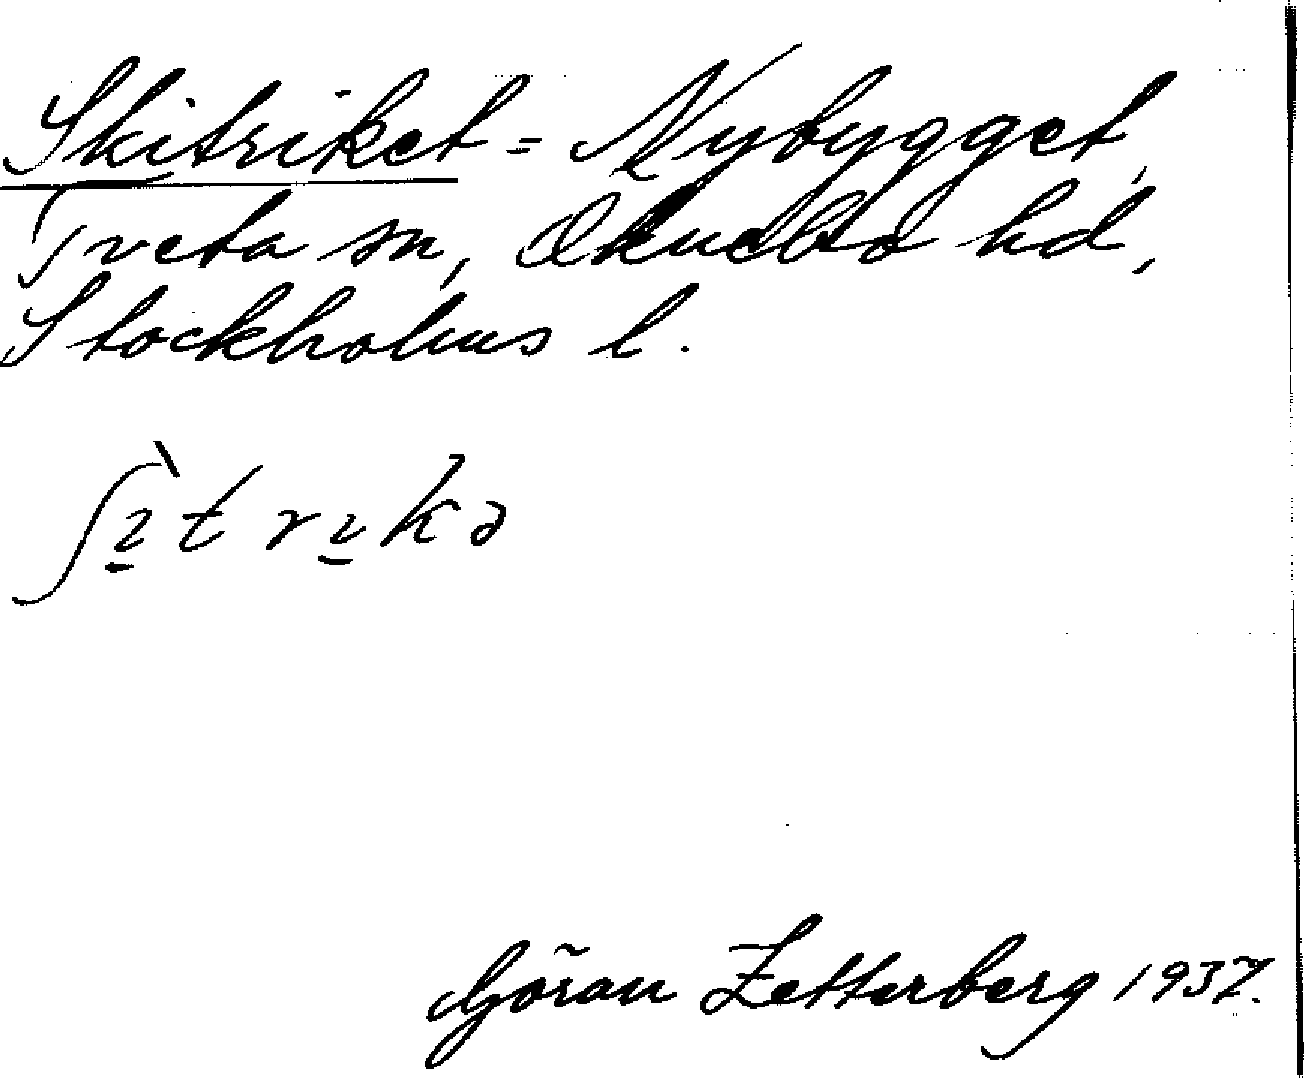 Skitriket = Nybygget,
Tveta sn, Öknebo hd,
Stockholms l.
ʃì̱t ri̱kə
Göran Zetterberg 1937.